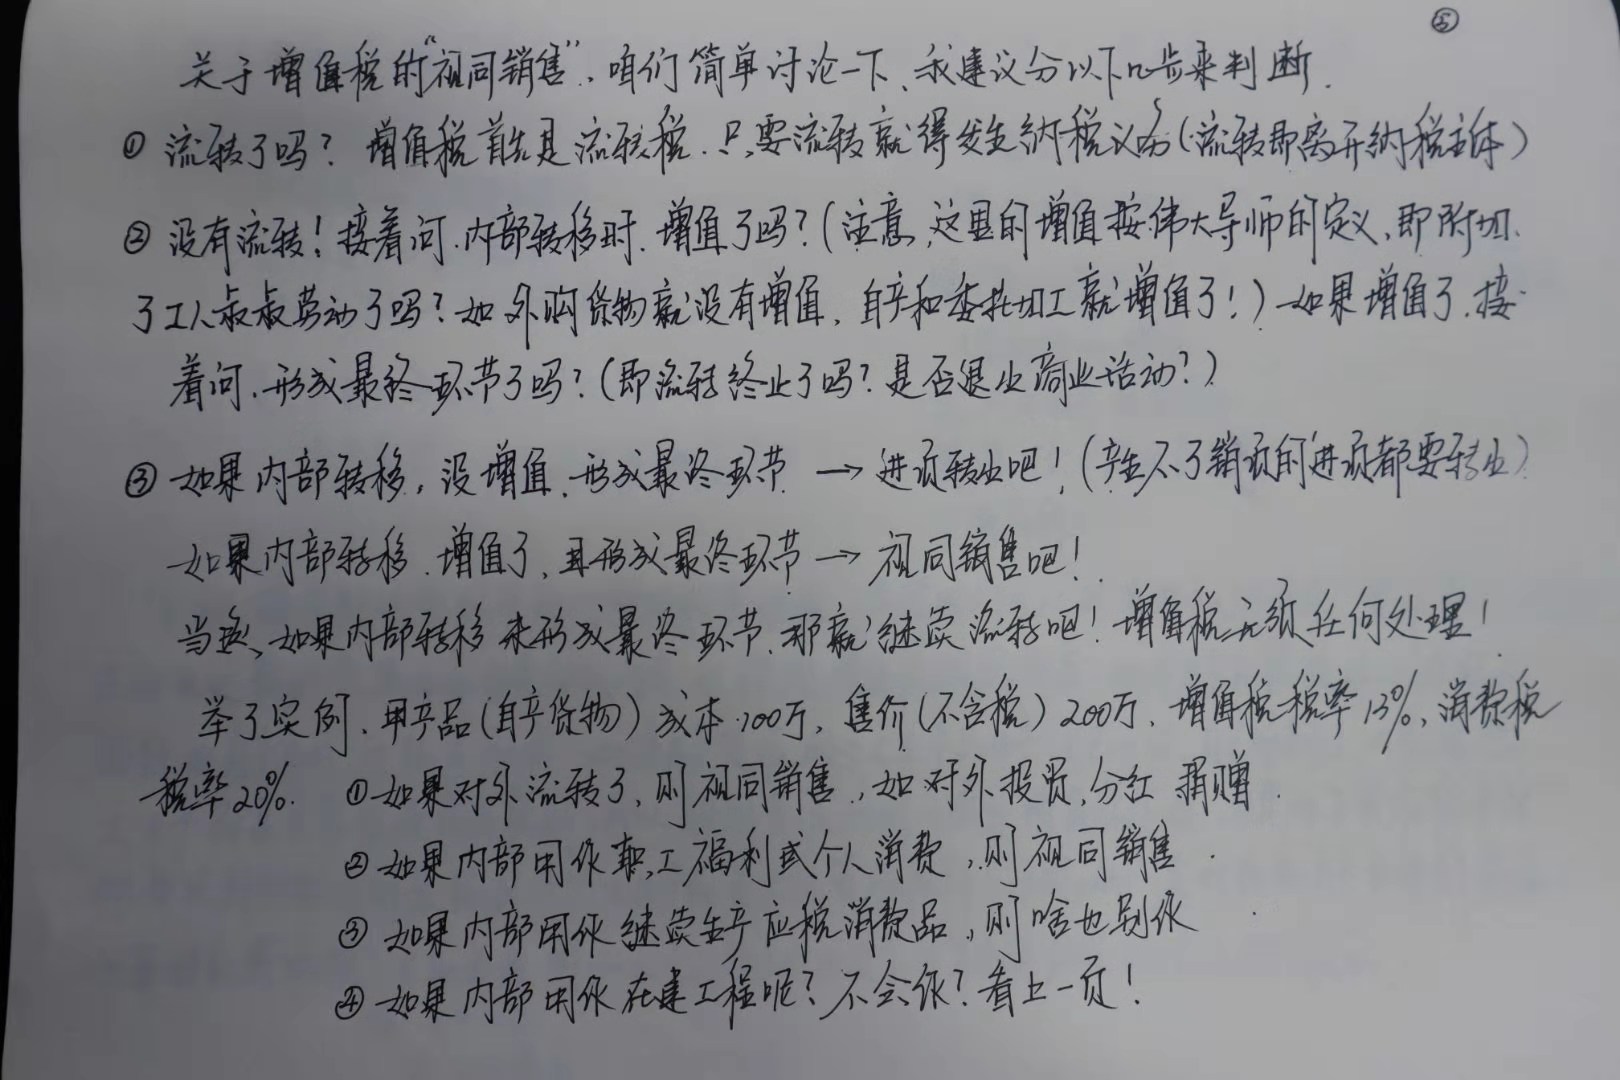 ⑤
关于增值税的"视同销售"、咱们简单讨论一下、我建议分以下几步来判断.
① 流转了吗？增值税首先是流转税.只要流转就得发生纳税义务(流转即离开纳税主体)
② 没有流转！接着问.内部转移时.增值了吗？(注意,这里的增值按伟大导师的定义,即附加.
了工人叔叔劳动了吗？如外购货物就没有增值,自产和委托加工就增值了！)如果增值了.接
着问.形成最终环节了吗？(即流转终止了吗？是否退出商业活动？)
③ 如果内部转移,没增值.形成最终环节 → 进项转出吧！(产生不了销项的进项都要转出)
如果内部转移.增值了、且形成最终环节 → 视同销售吧！
当然、如果内部转移未形成最终环节、那就继续流转吧！增值税无须任何处理！
举了实例.甲产品(自产货物)成本100万,售价(不含税)200万.增值税税率13%,消费税
税率20%. ①如果对外流转了,则视同销售,如对外投资,分红 捐赠.
②如果内部用作职工福利或个人消费,则视同销售.
③如果内部用作继续生产应税消费品,则啥也别作
④如果内部用作在建工程呢？不会作？看上一页！